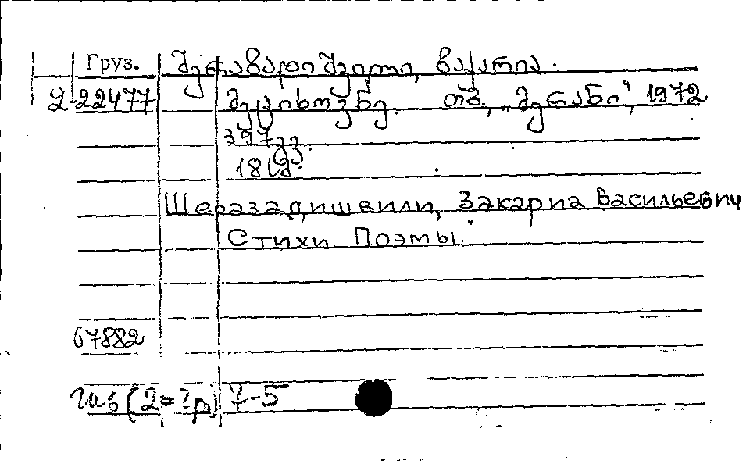 Груз. შერაზადიშვილი, ზაქარია.
22477 მეჯიხოვნე. თბ., „მერანი“, 1972
397 გვ.
Шеразадишвили, Закариа Васильевич
Стихи Поэмы.
67882
7-5